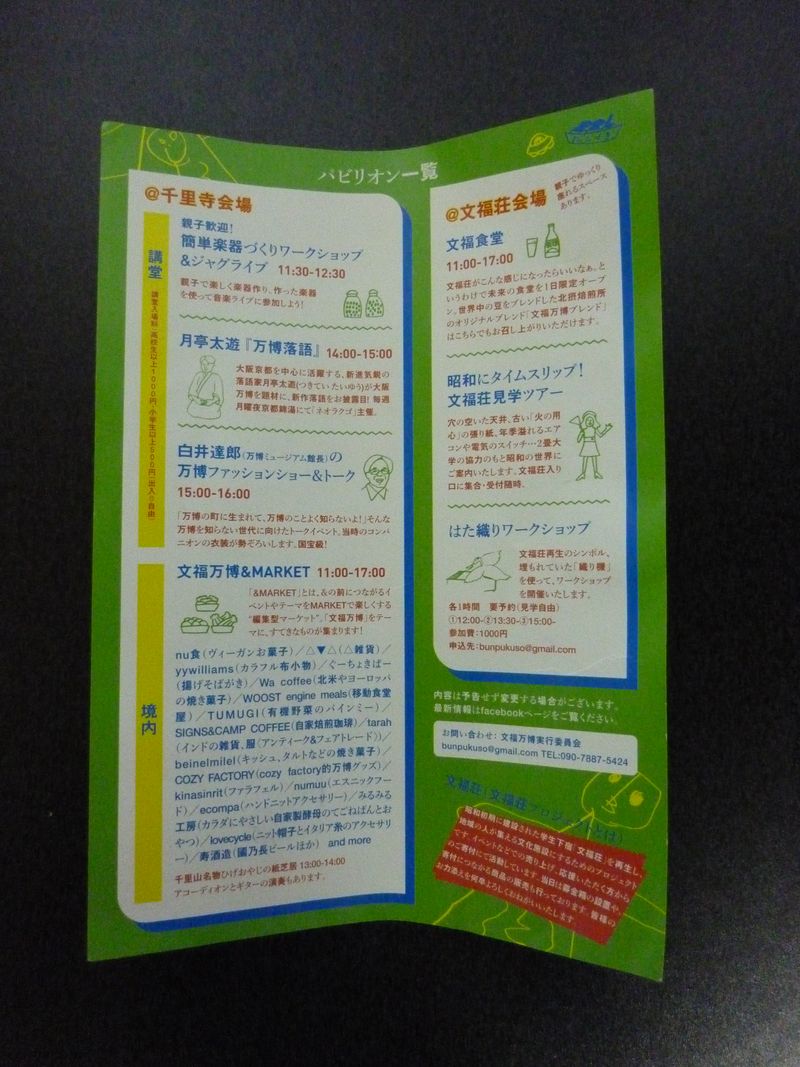 パビリオン一覧
@千里寺会場
講堂
講堂入場料/高校生以上1000円、小学生以上500円(出入り自由)
親子歓迎!
簡単楽器づくりワークショップ
&ジャグライブ 11:30-12:30
親子で楽しく楽器作り、作った楽器
を使って音楽ライブに参加しよう!
月亭太遊『万博落語』 14:00-15:00
大阪京都を中心に活躍する、新進気鋭の
落語家月亭太遊(つきてい たいゆう)が大阪
万博を題材に、新作落語をお披露目! 毎週
月曜夜京都錦湯にて「ネオラクゴ」主催。
白井達郎(万博ミュージアム館長)の
万博ファッションショー&トーク
15:00-16:00
「万博の町に生まれて、万博のことよく知らないよ!」そんな
万博を知らない世代に向けたトークイベント。当時のコンパ
ニオンの衣装が勢ぞろいします。国宝級!
境内
文福万博&MARKET 11:00-17:00
「&MARKET」とは、&の前につながるイ
ベントやテーマをMARKETで楽しくする
“編集型マーケット”。「文福万博」をテー
マに、すてきなものが集まります!
nu食(ヴィーガンお菓子)/△▼△(△雑貨)/
yywilliams(カラフル布小物)/ぐーちょきぱー
(揚げそばがき)/Wa coffee(北米やヨーロッパ
の焼き菓子)/WOOST engine meals(移動食堂
屋)/TUMUGI(有機野菜のバインミー)/
SIGNS&CAMP COFFEE(自家焙煎珈琲)/tarah
(インドの雑貨、服(アンティーク&フェアトレード))/
beinelmilel(キッシュ、タルトなどの焼き菓子)/
COZY FACTORY(cozy factory的万博グッズ)/
kinasinrit(ファラフェル)/numuu(エスニックフー
ド)/ecompa(ハンドニットアクセサリー)/みるみる
工房(カラダにやさしい自家製酵母のてごねぱんとお
やつ)/lovecycle(ニット帽子とイタリア糸のアクセサリ
ー)/寿酒造(國乃長ビールほか) and more
千里山名物ひげおやじの紙芝居 13:00-14:00
アコーディオンとギターの演奏もあります。
@文福荘会場
親子でゆっくり
座れるスペース
あります。
文福食堂
11:00-17:00
文福荘がこんな感じになったらいいなぁ。と
いうわけで未来の食堂を1日限定オープ
ン。世界中の豆をブレンドした北摂焙煎所
のオリジナルブレンド「文福万博ブレンド」
はこちらでもお召し上がりいただけます。
昭和にタイムスリップ!
文福荘見学ツアー
穴の空いた天井、古い「火の用
心」の張り紙、年季溢れるエア
コンや電気のスイッチ…2畳大
学の協力のもと昭和の世界に
ご案内いたします。文福荘入り
口に集合・受付随時。
はた織りワークショップ
文福荘再生のシンボル、
埋もれていた「織り機」
を使って、ワークショップ
を開催いたします。
各1時間 要予約(見学自由)
①12:00-②13:30-③15:00-
参加費:1000円
申込先:bunpukuso@gmail.com
内容は予告せず変更する場合がございます。
最新情報はfacebookページをご覧ください。
お問い合わせ: 文福万博実行委員会
bunpukuso@gmail.com TEL:090-7887-5424
文福荘(文福荘プロジェクトとは)
昭和初期に建設された学生下宿「文福荘」を再生し、
地域の人が集える文化施設にするためのプロジェクト
です。イベントなどでの売り上げ、応援いただく方から
のご寄付にて活動しています。当日は募金箱の設置や、
寄付につながる商品の販売も行っております。皆様の
お力添えを何卒よろしくおねがいいたします